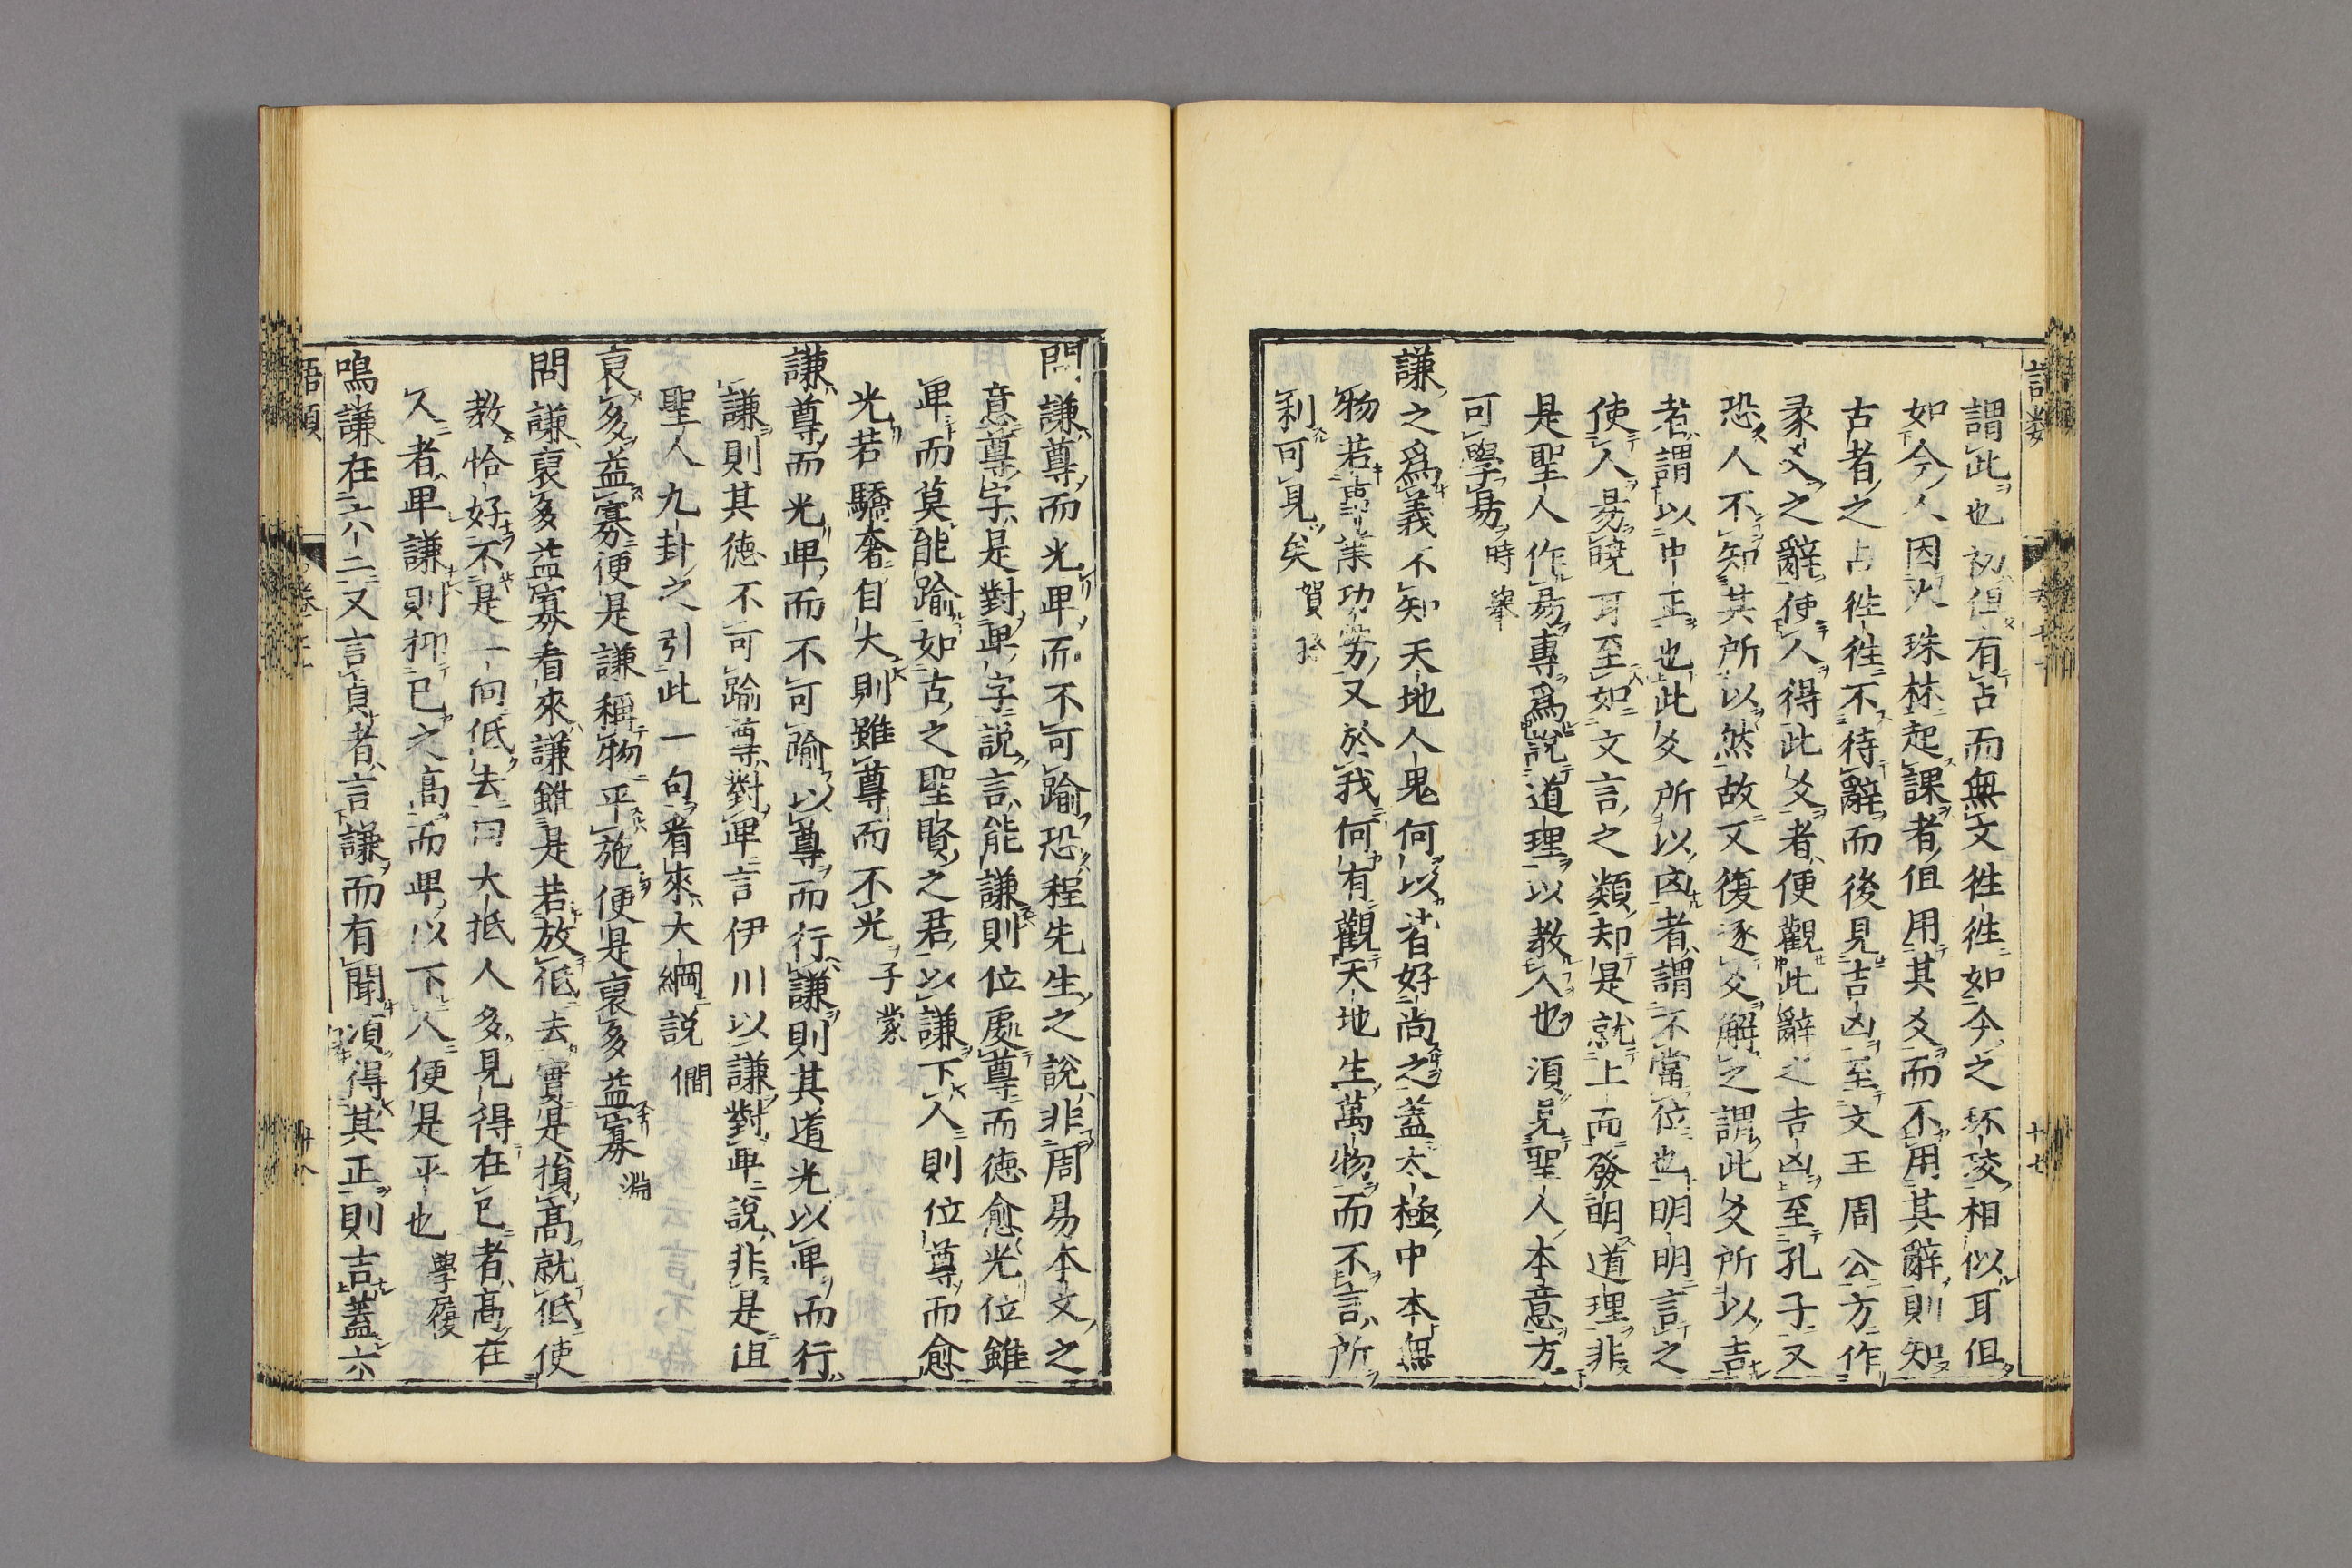 謂此也初但有占而無文徃徃如今之环珓相似耳但
如今人因火珠林起課者但用其爻而不用其辭則知
古者之占徃徃不待辭而後見吉凶至文王周公方作
彖爻之辭使人得此爻者便觀此辭之吉凶至孔子又
恐人不知其所以然故又復逐爻解之謂此爻所以吉
者謂以中正也此爻所以凶者謂不當位也明明言之
使人易曉耳至如文言之類却是就上面發明道理非
是聖人作易專爲說道理以教人也湏見聖人本意方
可學易 時舉
謙之爲義不知天地人鬼何以皆好尚之蓋太極中本無
物若事業功勞又於我何有觀天地生萬物而不言所
利可見矣 賀孫
問謙尊而光卑而不可踰恐程先生之說非周易本文之
意尊字是對卑字說言能謙則位處尊而德愈光位雖
卑而莫能踰如古之聖賢之君以謙下人則位尊而愈
光若驕奢自大則雖尊而不光 子蒙
謙尊而光卑而不可踰以尊而行謙則其道光以卑而行
謙則其德不可踰尊對卑言伊川以謙對卑說非是但
聖人九卦之引此一句看來大綱說 僩
裒多益寡便是謙稱物平施便是裒多益寡 淵
問謙裒多益寡看來謙雖是若放低去實是損高就低使
教恰好不是一向低去曰大抵人多見得在己者高在
人者卑謙則抑己之高而卑以下人便是平也 學履
鳴謙在六二又言貞者言謙而有聞湏得其正則吉蓋六
語類
卷七十
十七
語類
十八